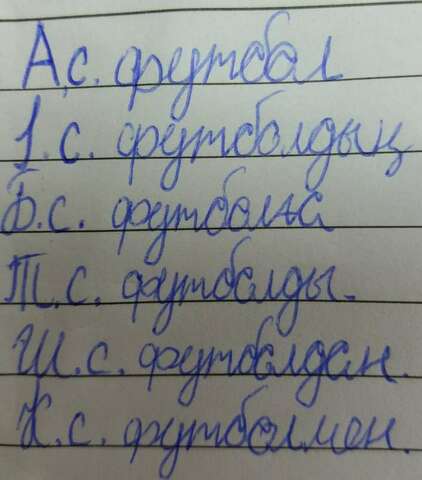 А.с. футбол
І.с. футболдың
Б.с. футболға
Т.с. футболды.
Ш.с. футболдан.
К.с. футболмен.